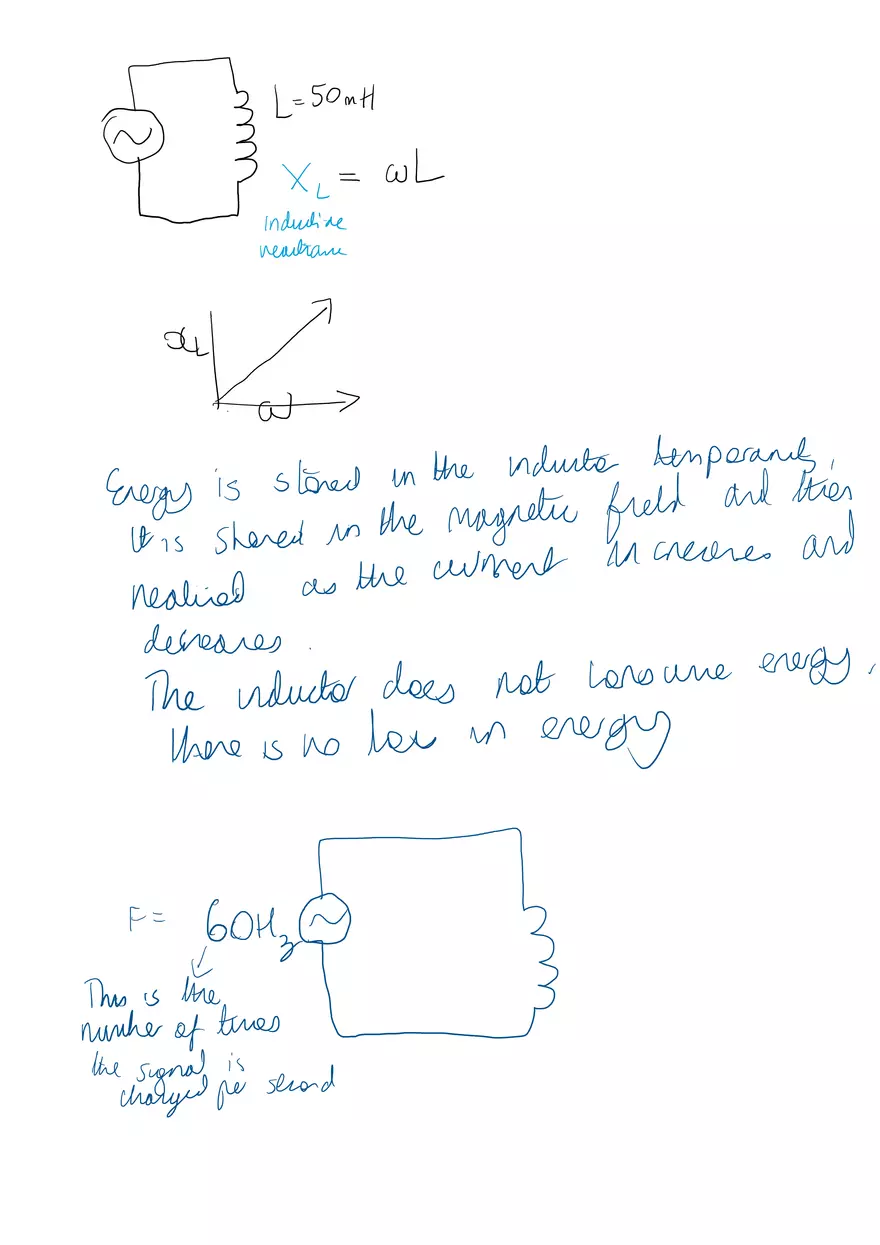 L = 50mH
X_L = ωL
inductive
reactance
x_L
ω
Energy is stored in the inductor temporarily,
It is stored in the magnetic field and then
realised as the current increases and
decreases.
The inductor does not consume energy,
there is no loss in energy
F = 60Hz
This is the
number of times
the signal is
changed per second